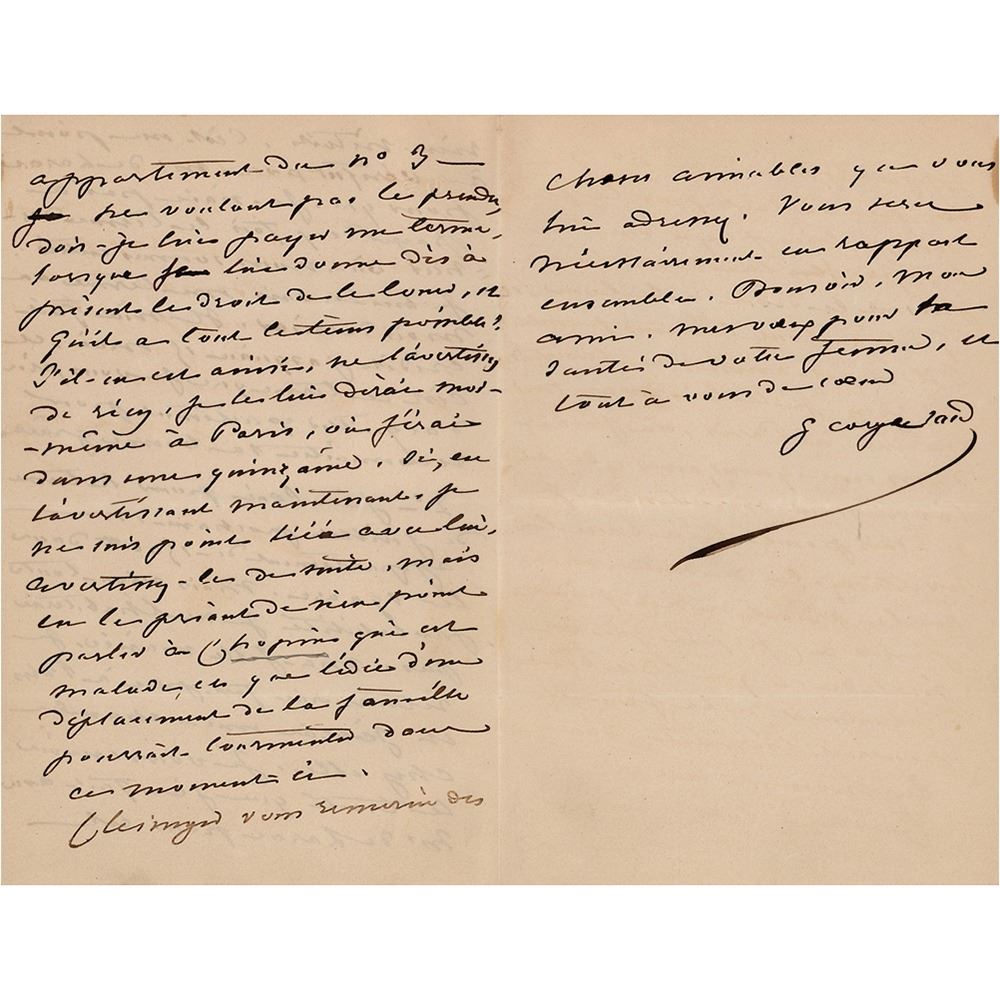 appartement du no 3
ne voulant pas le prendre,
dois-je lui payer un terme,
lorsque je lui donne dès à
présent le droit de le louer, et
qu'il a tout le tems possible?
S'il en est ainsi, ne l'avertissez
de rien, je le lui dirai moi-
-même à Paris, où j'irai
dans une quinzaine. Si, en
l'avertissant maintenant, je
ne suis point liée avec lui,
avertissez-le de suite, mais
en le priant de n'en point
parler à Chopin qui est
malade, et que l'idée d'un
déplacement de la famille
pourrait tourmenter dans
ce moment-ci.
vous remercie des
choses aimables que vous
lui adressez. Vous serez
nécessairement en rapport
ensemble. Bonsoir, mon
ami. mes vœux pour la
santé de votre femme, et
tout à vous de cœur
George Sand